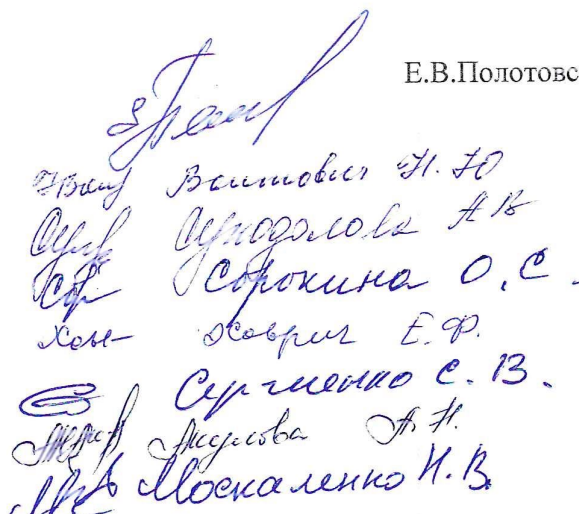 Е.В.Полотовс
Войтович Н. Ю
Суходолова А В
Сорокина О. С.
Ховрич Е. Ф.
Сергиенко С. В.
Акулова А. Н.
Москаленко Н. В.